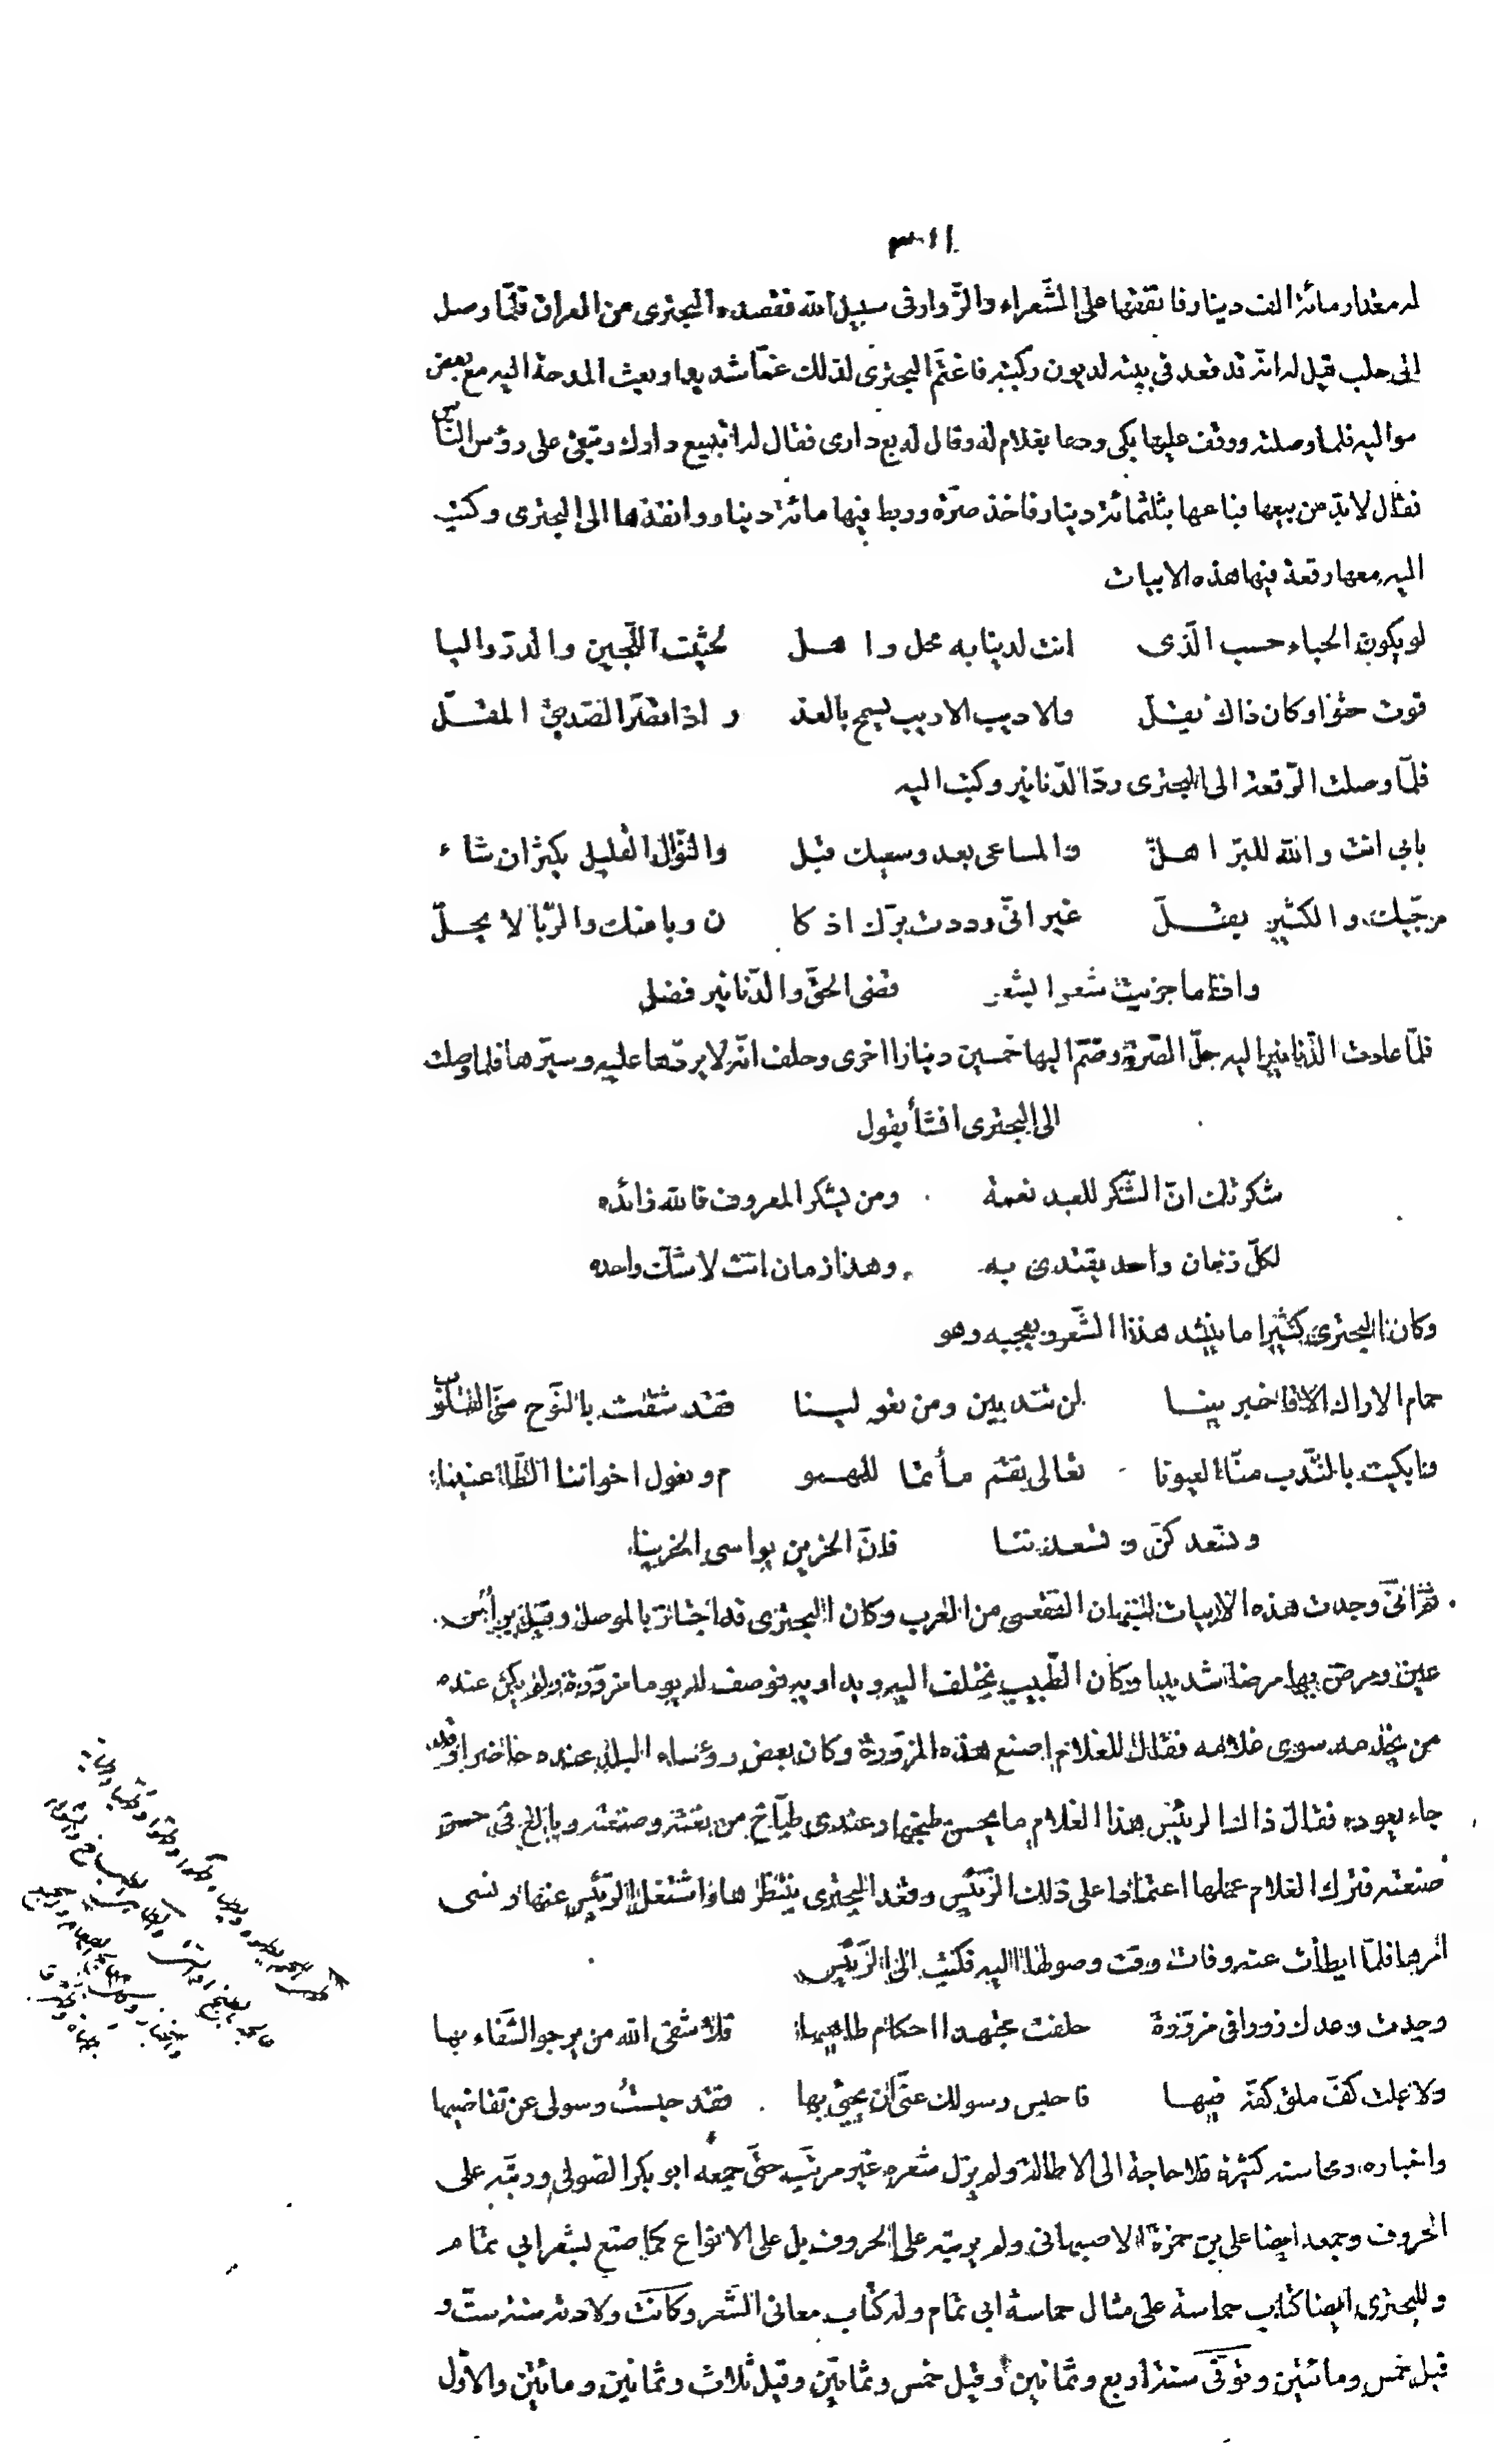 له مقدار مائة الف دينار فانفقها على الشّعراء والزّوار فى سبيل الله فقصده البحترى من العراق فلمّا وصل
الى حلب قيل له انّه قد قعد فى بيته لديون ركبته فاغتمّ البحترى لذلك غمّا شديدا وبعث المدحة اليه مع بعض
مواليه فلما وصلته ووقف عليها بكى ودعا بغلام له وقال له بع دارى فقال له اتبيع دارك وتبقى على رؤس النّاس
فقال لابدّ من بيعها فباعها بثلثمائة دينار فاخذ صرّة وربط فيها مائة دينار وانفذها الى البحترى وكتب
اليه معها رقعة فيها هذه الابيات
لو يكون الحباء حسب الّذى انت لدينا به محل واهل لحثيت اللّجين والدرّ واليا
قوت حثوا وكان ذاك يقلّ والاديب الاديب يسمح بالعذ ر اذا قصّر الصّديق المقلّ
فلمّا وصلت الرّقعة الى البحترى ردّ الدّنانير وكتب اليه
بابى انت والله للبرّ اهلّ والمساعى بعد وسعيك قبل والنّوال القليل يكثر ان شاء
مرجّيك والكثير يقلّ غير انّى رددت برّك اذ كا ن ربا منك والرّبا لا يحلّ
واذا ما جزيت شعرا بشعر قضى الحقّ والدّنانير فضل
فلمّا عادت الدّنانير اليه حلّ الصّرة وضمّ اليها خمسين دينارا اخرى وحلف انّه لا يردّها عليه وسيّرها فلما وصلت
الى البحترى انشأ يقول
شكرتك انّ الشّكر للعبد نعمة ومن يشكر المعروف فالله زائده
لكلّ زمان واحد يقتدى به وهذا زمان انت لا شكّ واحده
وكان البحترى كثيرا ما ينشد هذا الشّعر ويعجبه وهو
حمام الاراك الا فاخبرينا لمن تندبين ومن تعولينا فقد شقت بالنّوح منّا القلوب
وابكيت بالنّدب منّا العيونا تعالى نقم مأتما للهمو م ونعول اخواننا الظّاعنينا
ونسعدكنّ وتسعدننا فانّ الحزين يواسى الحزينا
ثمّ انّى وجدت هذه الابيات لنبهان الفقعسى من العرب وكان البحترى قد اجتاز بالموصل وقيل براس
عين ومرض بها مرضا شديدا وكان الطّبيب يختلف اليه ويداويه فوصف له يوما مزوّرة ولم يكن عنده
من يخدمه سوى غلامه فقال للغلام اصنع هذه المزوّرة وكان بعض رؤساء البلد عنده حاضرا وقد
جاء يعوده فقال ذاك الرئيس هذا الغلام ما يحسن طبخها وعندى طبّاخ من نعته وصنعته وبالغ فى حسن
صنعته فترك الغلام عملها اعتمادا على ذلك الرّئيس وقعد البحترى ينتظرها واشتغل الرّئيس عنها ونسى
امرها فلمّا ابطأت عنه وفات وقت وصولها اليه فكتب الى الرّئيس
وجدت وعدك زورا فى مزوّرة حلفت مجتهدا احكام طاهيها فلا شفى الله من يرجو الشّفاء بها
ولا علت كفّ ملق كفّه فيها فاحبس رسولك عنّى ان يجىء بها فقد حبستُ رسولى عن تقاضيها
واخباره ومحاسنه كثيرة فلا حاجة الى الاطالة ولم يزل شعره غير مرتّب حتّى جمعه ابو بكر الصّولى ورتبّه على
الحروف وجمعه ايضا على بن حمزة الاصبهانى ولم يرتبه على الحروف بل على الانواع كما صنع بشعر ابى تمام
وللبحترى ايضا كتاب حماسة على مثال حماسة ابى تمام وله كتاب معانى الشّعر وكانت ولادته سنة ستّ و
قيل خمس ومائتين وتوفّى سنة اربع وثمانين وقيل خمس وثمانين وقيل ثلاث وثمانين ومائتين والاوّل